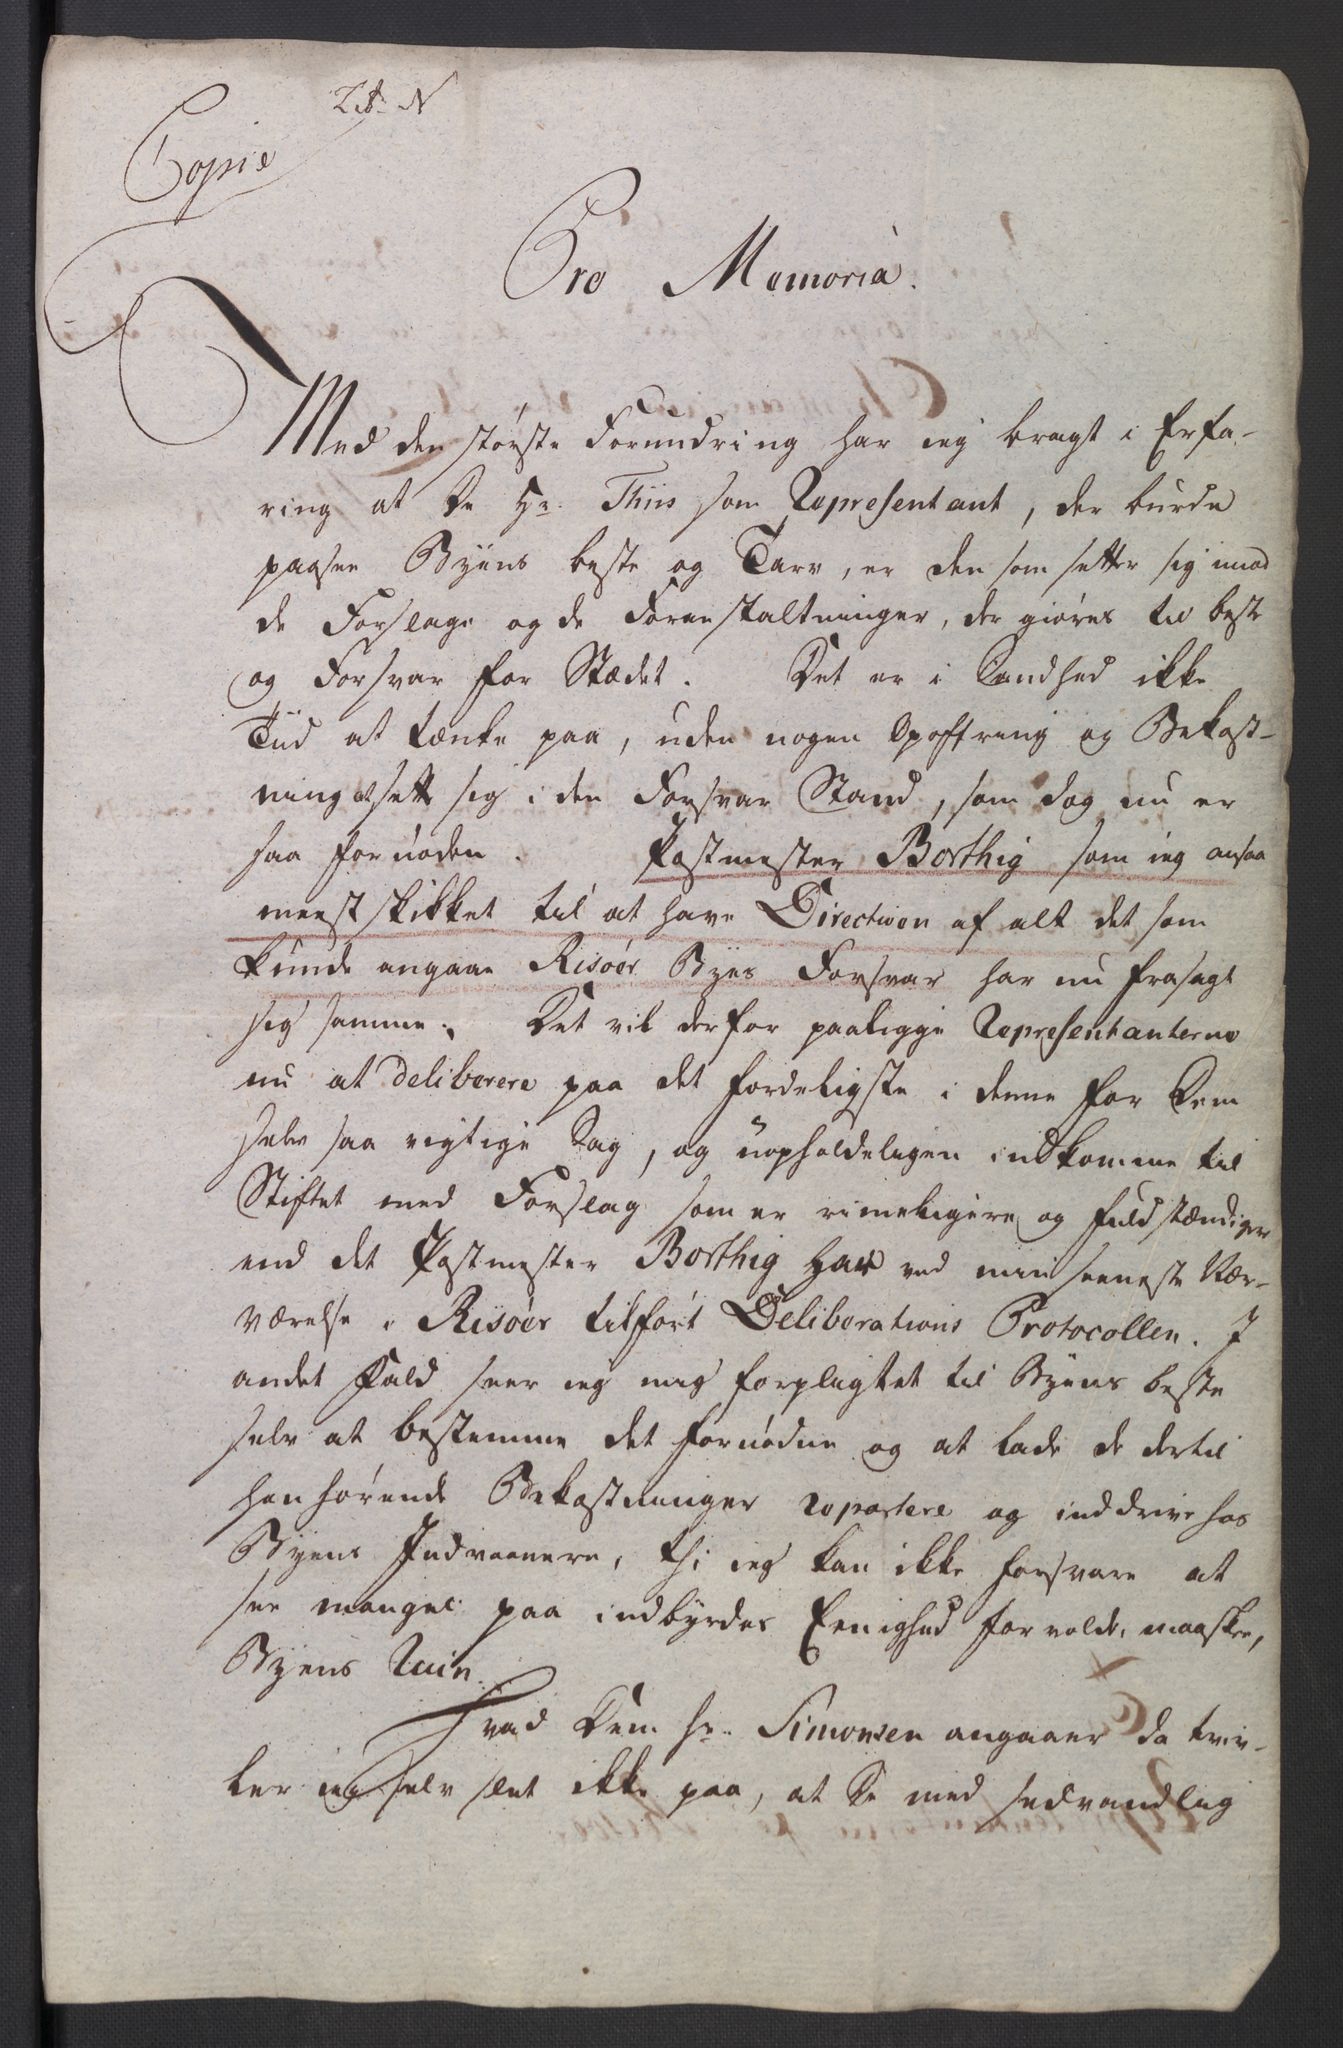 Litr. N
Copie
Pro Memoria.
Med den største Forundring har ieg bragt i Erfa-
ring at De Hr. Thiis som Representant, der burde
paasee Byens beste og Tarv, er den som setter sig imod
de Forslage og de Foranstaltninger, der giøres til beste
og Forsvar for Stædet. Det er i Sandhed ikke
Tiid at tænke paa, uden nogen Opoffring og Bekost-
ning at sette sig i den Forsvar Stand, som dog nu er
saa fornøden. Postmester Borthig som ieg ansaa
meest skikket til at have Directionen af alt det som
kunde angaae Risøer Byes Forsvar har nu frasagt
sig samme. Det vil derfor paaligge Representanterne
nu at deliberere paa det fordeligste i denne for Dem
selv saa vigtige Sag, og uopholdeligen indkomme til
Stiftet med Forslag som er rimeligere og fuldstændiger
end det Postmester Borthig har ved min seeneste Nær-
værelse i Risøer tilført Deliberations Protocollen. I
andet Fald seer ieg mig forpligtet til Byens beste
selv at bestemme det fornødne og at lade de dertil
henhørende Bekostninger repartere og inddrive hos
Byens Indvaanere, thi ieg kan ikke forsvare at
see mangel paa indbyrdes Eenighed forvolde, maaskee,
Byens Ruin.
Hvad Dem Hr. Simonsen angaaer da tviv-
ler ieg selv slet ikke paa, at De med sedvandlig